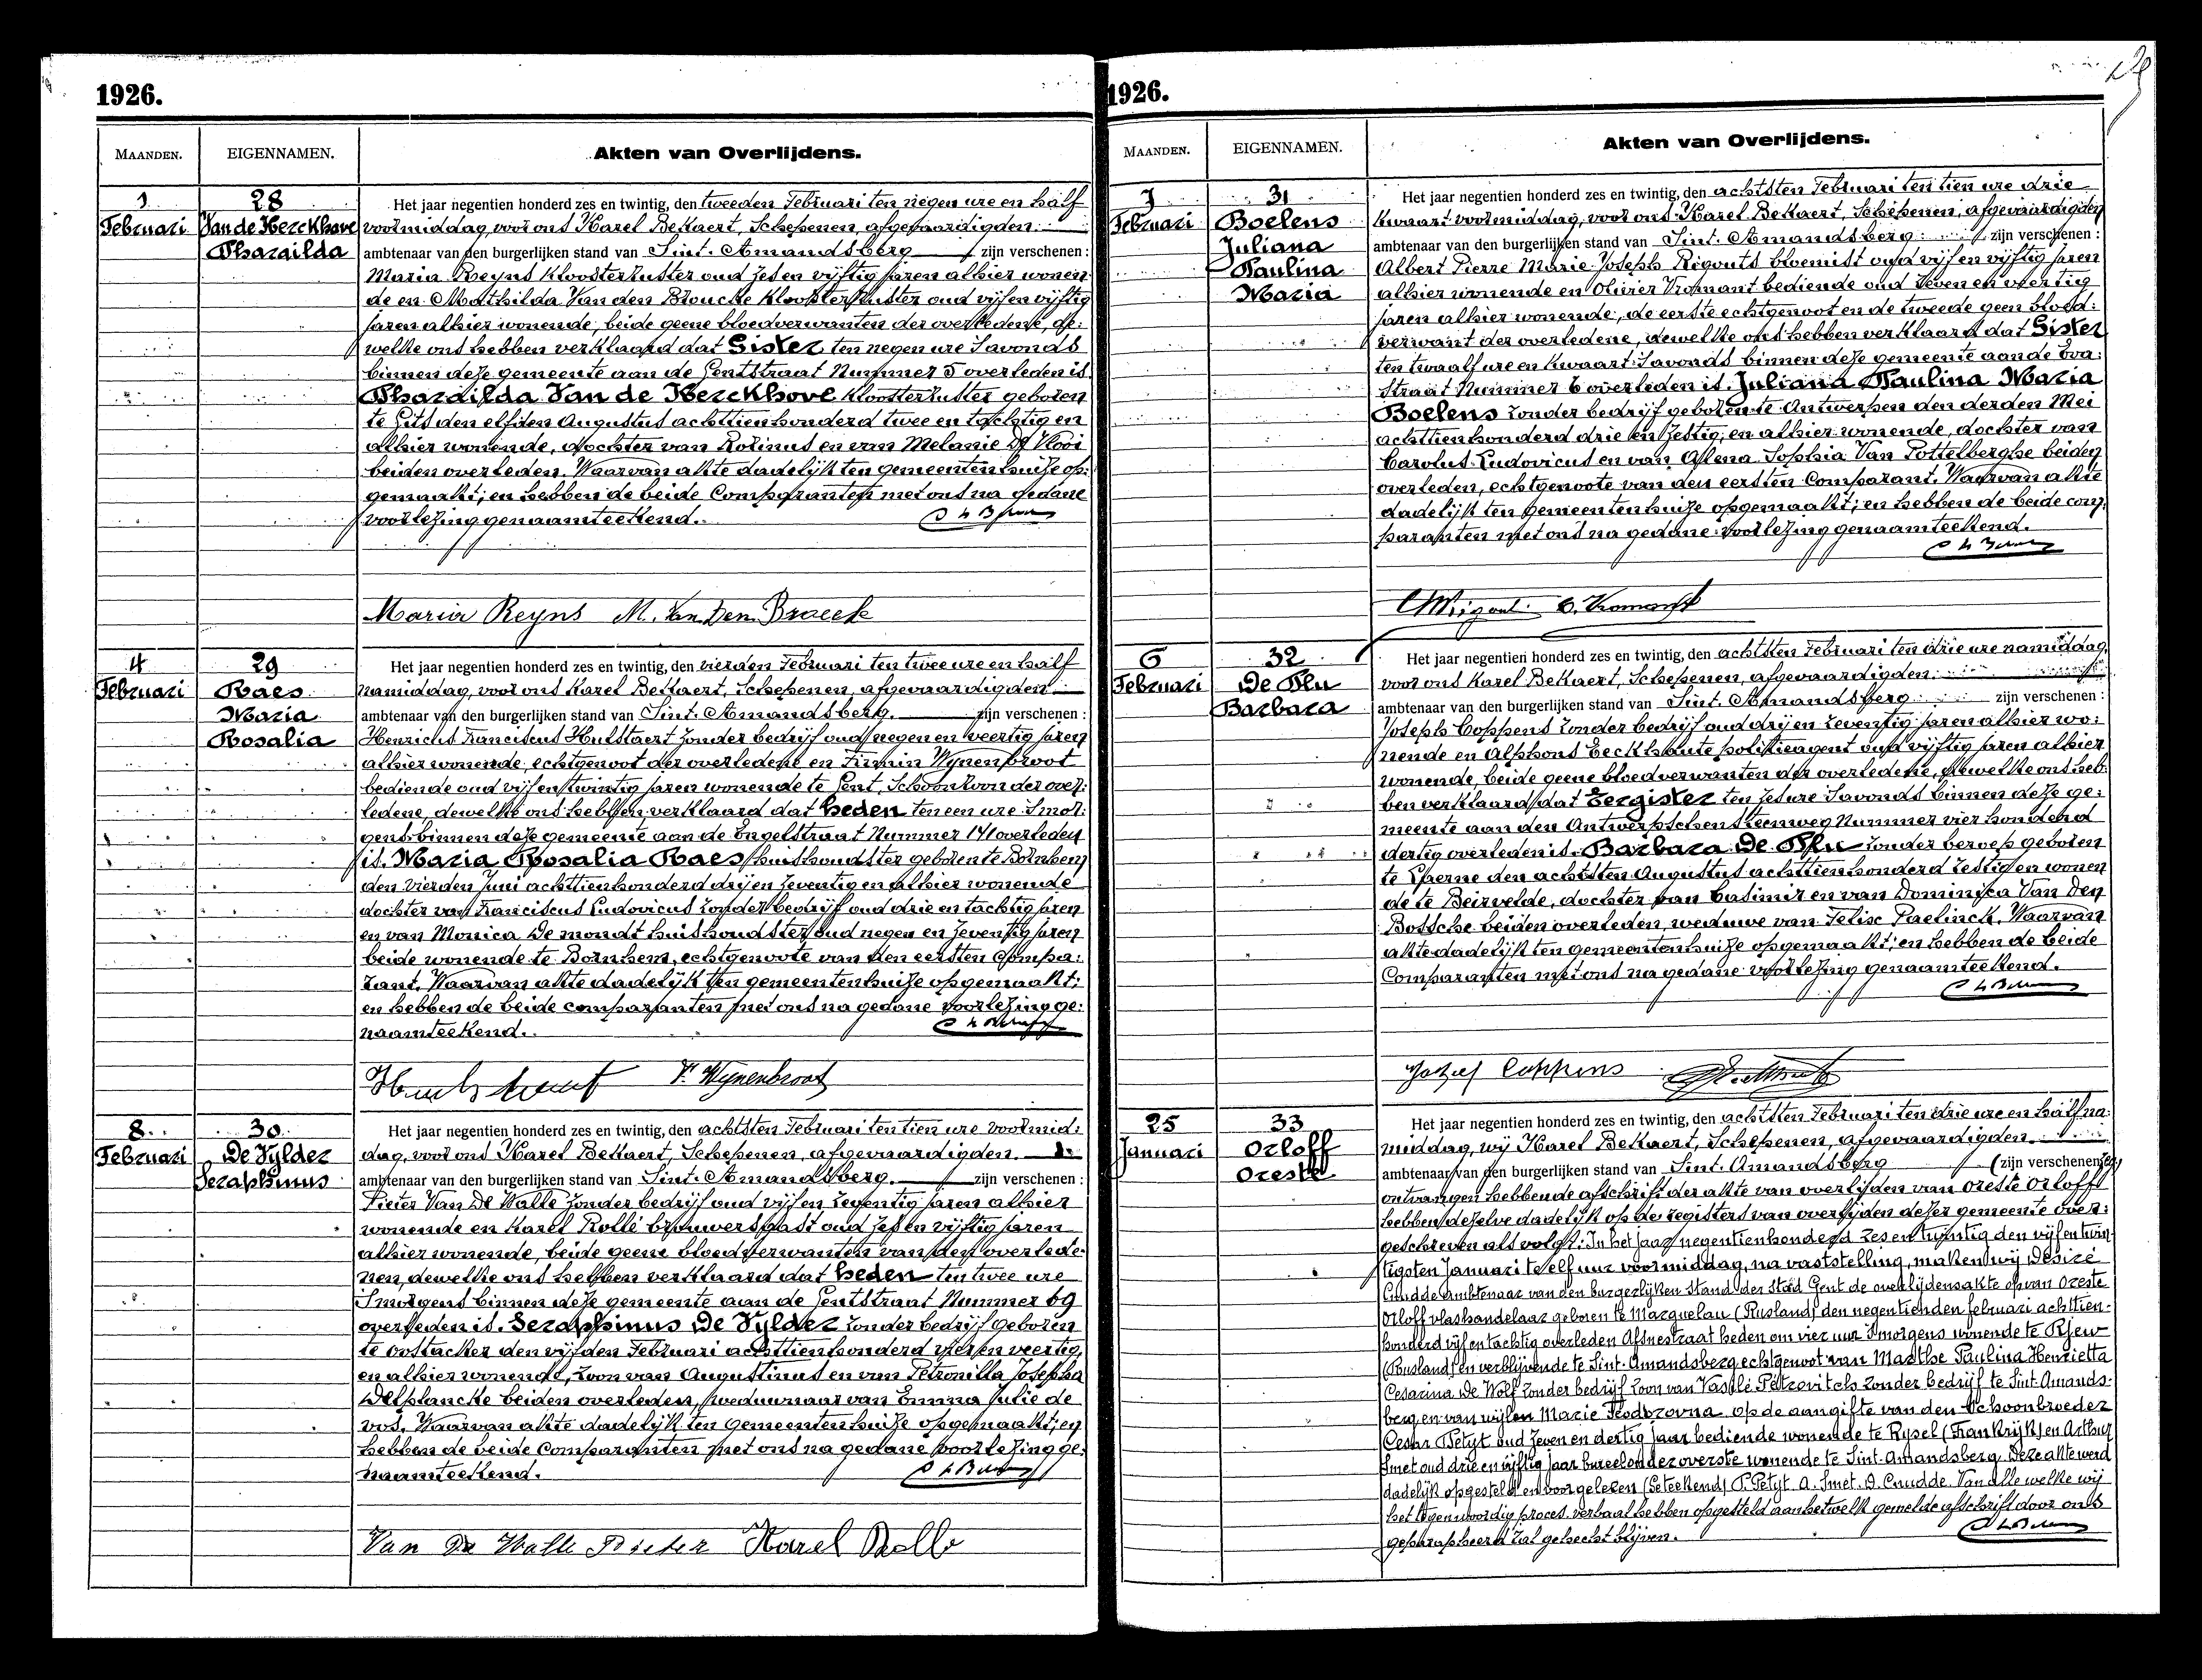 1926.
MAANDEN.
EIGENNAMEN.
Akten van Overlijdens.
1
Februari
28
Van de Kerckhove
Pharaïlda
Het jaar negentien honderd zes en twintig, den tweeden Februari ten negen ure en half
voormiddag, voor ons Karel Bekaert, Schepenen, afgevaardigden
ambtenaar van den burgerlijken stand van Sint-Amandsberg zijn verschenen :
Maria Reyns Kloosterzuster oud zes en vijftig jaren alhier wonen-
de en Mathilda Van den Broucke Kloosterzuster oud vijf en vijftig
jaren alhier wonende, beide geene bloedverwanten der overledene, de-
welke ons hebben verklaard dat Gister ten negen ure 'savonds
binnen deze gemeente aan de Gentstraat Nummer 5 overleden is
Pharaïlda Van de Kerckhove Kloosterzuster geboren
te Gits den elfden Augustus achttienhonderd twee en tachtig en
alhier wonende, dochter van Rotinus en van Melanie De Vlooi
beiden overleden. Waarvan akte dadelijk ten gemeentenhuize op-
gemaakt; en hebben de beide Comparanten met ons na gedane
voorlezing genaamteekend.
Maria Reyns M. Van Den Broeck
4
Februari
29
Raes
Maria
Rosalia
Het jaar negentien honderd zes en twintig, den vierden Februari ten twee ure en half
namiddag, voor ons Karel Bekaert, Schepenen, afgevaardigden
ambtenaar van den burgerlijken stand van Sint-Amandsberg. zijn verschenen :
Henricus Franciscus Hulstaert zonder bedrijf oud negen en veertig jaren
alhier wonende, echtgenoot der overledene en Firmin Wynenbroot
bediende oud vijf en twintig jaren wonende te Gent, Schoonzoon der over-
ledene, dewelke ons hebben verklaard dat heden ten een ure 'smor-
gens binnen deze gemeente aan de Engelstraat Nummer 141 overleden
is. Maria Rosalia Raes huishoudster geboren te Bornhem
den vierden Juni achttienhonderd drij en zeventig en alhier wonende
dochter van Franciscus Ludovicus zonder bedrijf oud drie en tachtig jaren
en van Monica De mondt huishoudster oud negen en zeventig jaren
beide wonende te Bornhem, echtgenoote van den eersten Compa-
rant. Waarvan akte dadelijk ten gemeentenhuize opgemaakt;
en hebben de beide comparanten met ons na gedane voorlezing ge-
naamteekend.
F. Wynenbroot
8
Februari
30
De Vylder
Seraphinus
Het jaar negentien honderd zes en twintig, den achtsten Februari ten tien ure voormid-
dag, voor ons Karel Bekaert, Schepenen, afgevaardigden.
ambtenaar van den burgerlijken stand van Sint-Amandsberg. zijn verschenen :
Pieter Van De Walle zonder bedrijf oud vijf en zeventig jaren alhier
wonende en Karel Rollé brouwersgast oud zes en vijftig jaren
alhier wonende, beide geene bloedverwanten van den overlede-
nen, dewelke ons hebben verklaard dat heden ten twee ure
'Smorgens binnen deze gemeente aan de Gentstraat Nummer 69
overleden is. Seraphinus De Vylder zonder bedrijf geboren
te Oostacker den vijfden Februari achttienhonderd vier en veertig,
en alhier wonende, zoon van Augustinus en van Petronilla Josepha
Delplancke beiden overleden, weduwnaar van Emma Julie de
vos. Waarvan akte dadelijk ten Gemeentenhuize opgemaakt; en
hebben de beide Comparanten met ons na gedane voorlezing ge-
naamteekend.
Van De Walle Pieter Karel Rolle
1926.
MAANDEN.
EIGENNAMEN.
Akten van Overlijdens.
7
Februari
31
Boelens
Juliana
Paulina
Maria
Het jaar negentien honderd zes en twintig, den achtsten Februari ten tien ure drie
kwaart voormiddag, voor ons Karel Bekaert, Schepenen, afgevaardigden
ambtenaar van den burgerlijken stand van Sint-Amandsberg. zijn verschenen :
Albert Pierre Marie Joseph Rigouts bloemist oud vijf en vijftig jaren
alhier wonende en Olivier Vromant bediende oud zeven en veertig
jaren alhier wonende, de eerste echtgenoot en de tweede geen bloed-
verwant der overledene, dewelke ons hebben verklaard dat Gister
ten twaalf ure en kwaart 'savonds binnen deze gemeente aan de Eva-
straat Nummer 6 overleden is. Juliana Paulina Maria
Boelens zonder bedrijf geboren te Antwerpen den derden Mei
achttienhonderd drie en zestig, en alhier wonende, dochter van
Carolus Ludovicus en van Sophia Van Pottelberghe beiden
overleden, echtgenoote van den eersten Comparant. Waarvan akte
dadelijk ten Gemeentenhuize opgemaakt; en hebben de beide com-
paranten met ons na gedane voorlezing genaamteekend.
O. Vromant
6
Februari
32
De Plu
Barbara
Het jaar negentien honderd zes en twintig, den achtsten Februari ten drie ure namiddag,
voor ons Karel Bekaert, Schepenen, afgevaardigden
ambtenaar van den burgerlijken stand van Sint-Amandsberg zijn verschenen :
Joseph Coppens zonder bedrijf oud drij en zeventig jaren alhier wo-
nende en Alphons Eeckhaute politieagent oud vijftig jaren alhier
wonende, beide geene bloedverwanten der overledene, dewelke ons heb-
ben verklaard dat Eergister ten zes ure 'savonds binnen deze ge-
meente aan den Antwerpschensteenweg Nummer vier honderd
dertig overleden is. Barbara De Plu zonder beroep geboren
te Eperne den achtsten Augustus achttienhonderd zestig en wonen
de te Beirvelde, dochter van Casimir en van Dominica Van Den
Bossche beiden overleden, weduwe van Felix Paelinck. Waarvan
akte dadelijk ten gemeentenhuize opgemaakt; en hebben de beide
Comparanten met ons na gedane voorlezing genaamteekend.
Jozef Coppens
25
Januari
33
Orloff
Oreste
Het jaar negentien honderd zes en twintig, den achtsten Februari ten drie ure en half na-
middag, wij Karel Bekaert, Schepenen, afgevaardigden
ambtenaar van den burgerlijken stand van Sint-Amandsberg (zijn verschenen
ontvangen hebbende afschrift der akte van overlijden van Oreste Orloff
hebben dezelve dadelijk op de registers van overlijden dezer gemeente over-
geschreven als volgt: In het jaar negentienhonderd zes en twintig den vijf en twin-
tigsten Januari te elf uur voormiddag, na vaststelling, maken wij Desiré
Cnudde Ambtenaar van den burgerlijken Stand der Stad Gent de overlijdensakte op van Oreste
Orloff vlashandelaar geboren te Marquelau (Rusland) den negentienden februari achttien-
honderd vijf en tachtig overleden Afsneestraat heden om vier uur 'smorgens wonende te Rjew
(Rusland) en verblijvende te Sint-Amandsberg echtgenoot van Marthe Paulina Henrietta
Cesarina De Wolf zonder bedrijf zoon van Vassilé Petrovitch zonder bedrijf te Sint-Amands-
berg en van wijlen Marie Feodorovna op de aangifte van den schoonbroeder
Cesar Petyt oud zeven en dertig jaar bediende wonende te Rysel (Frankrijk) en Arthur
Smet oud drie en vijftig jaar bureelonderoverste wonende te Sint-Amandsberg. Deze akte werd
dadelijk opgesteld en voorgelezen (Geteekend) P. Petyt A. Smet. D. Cnudde. Van alle welke wij
het tegenwoordig proces verbaal hebben opgesteld aan hetwelk gemelde afschrift door ons
geparapheerd zal gehecht blijven.